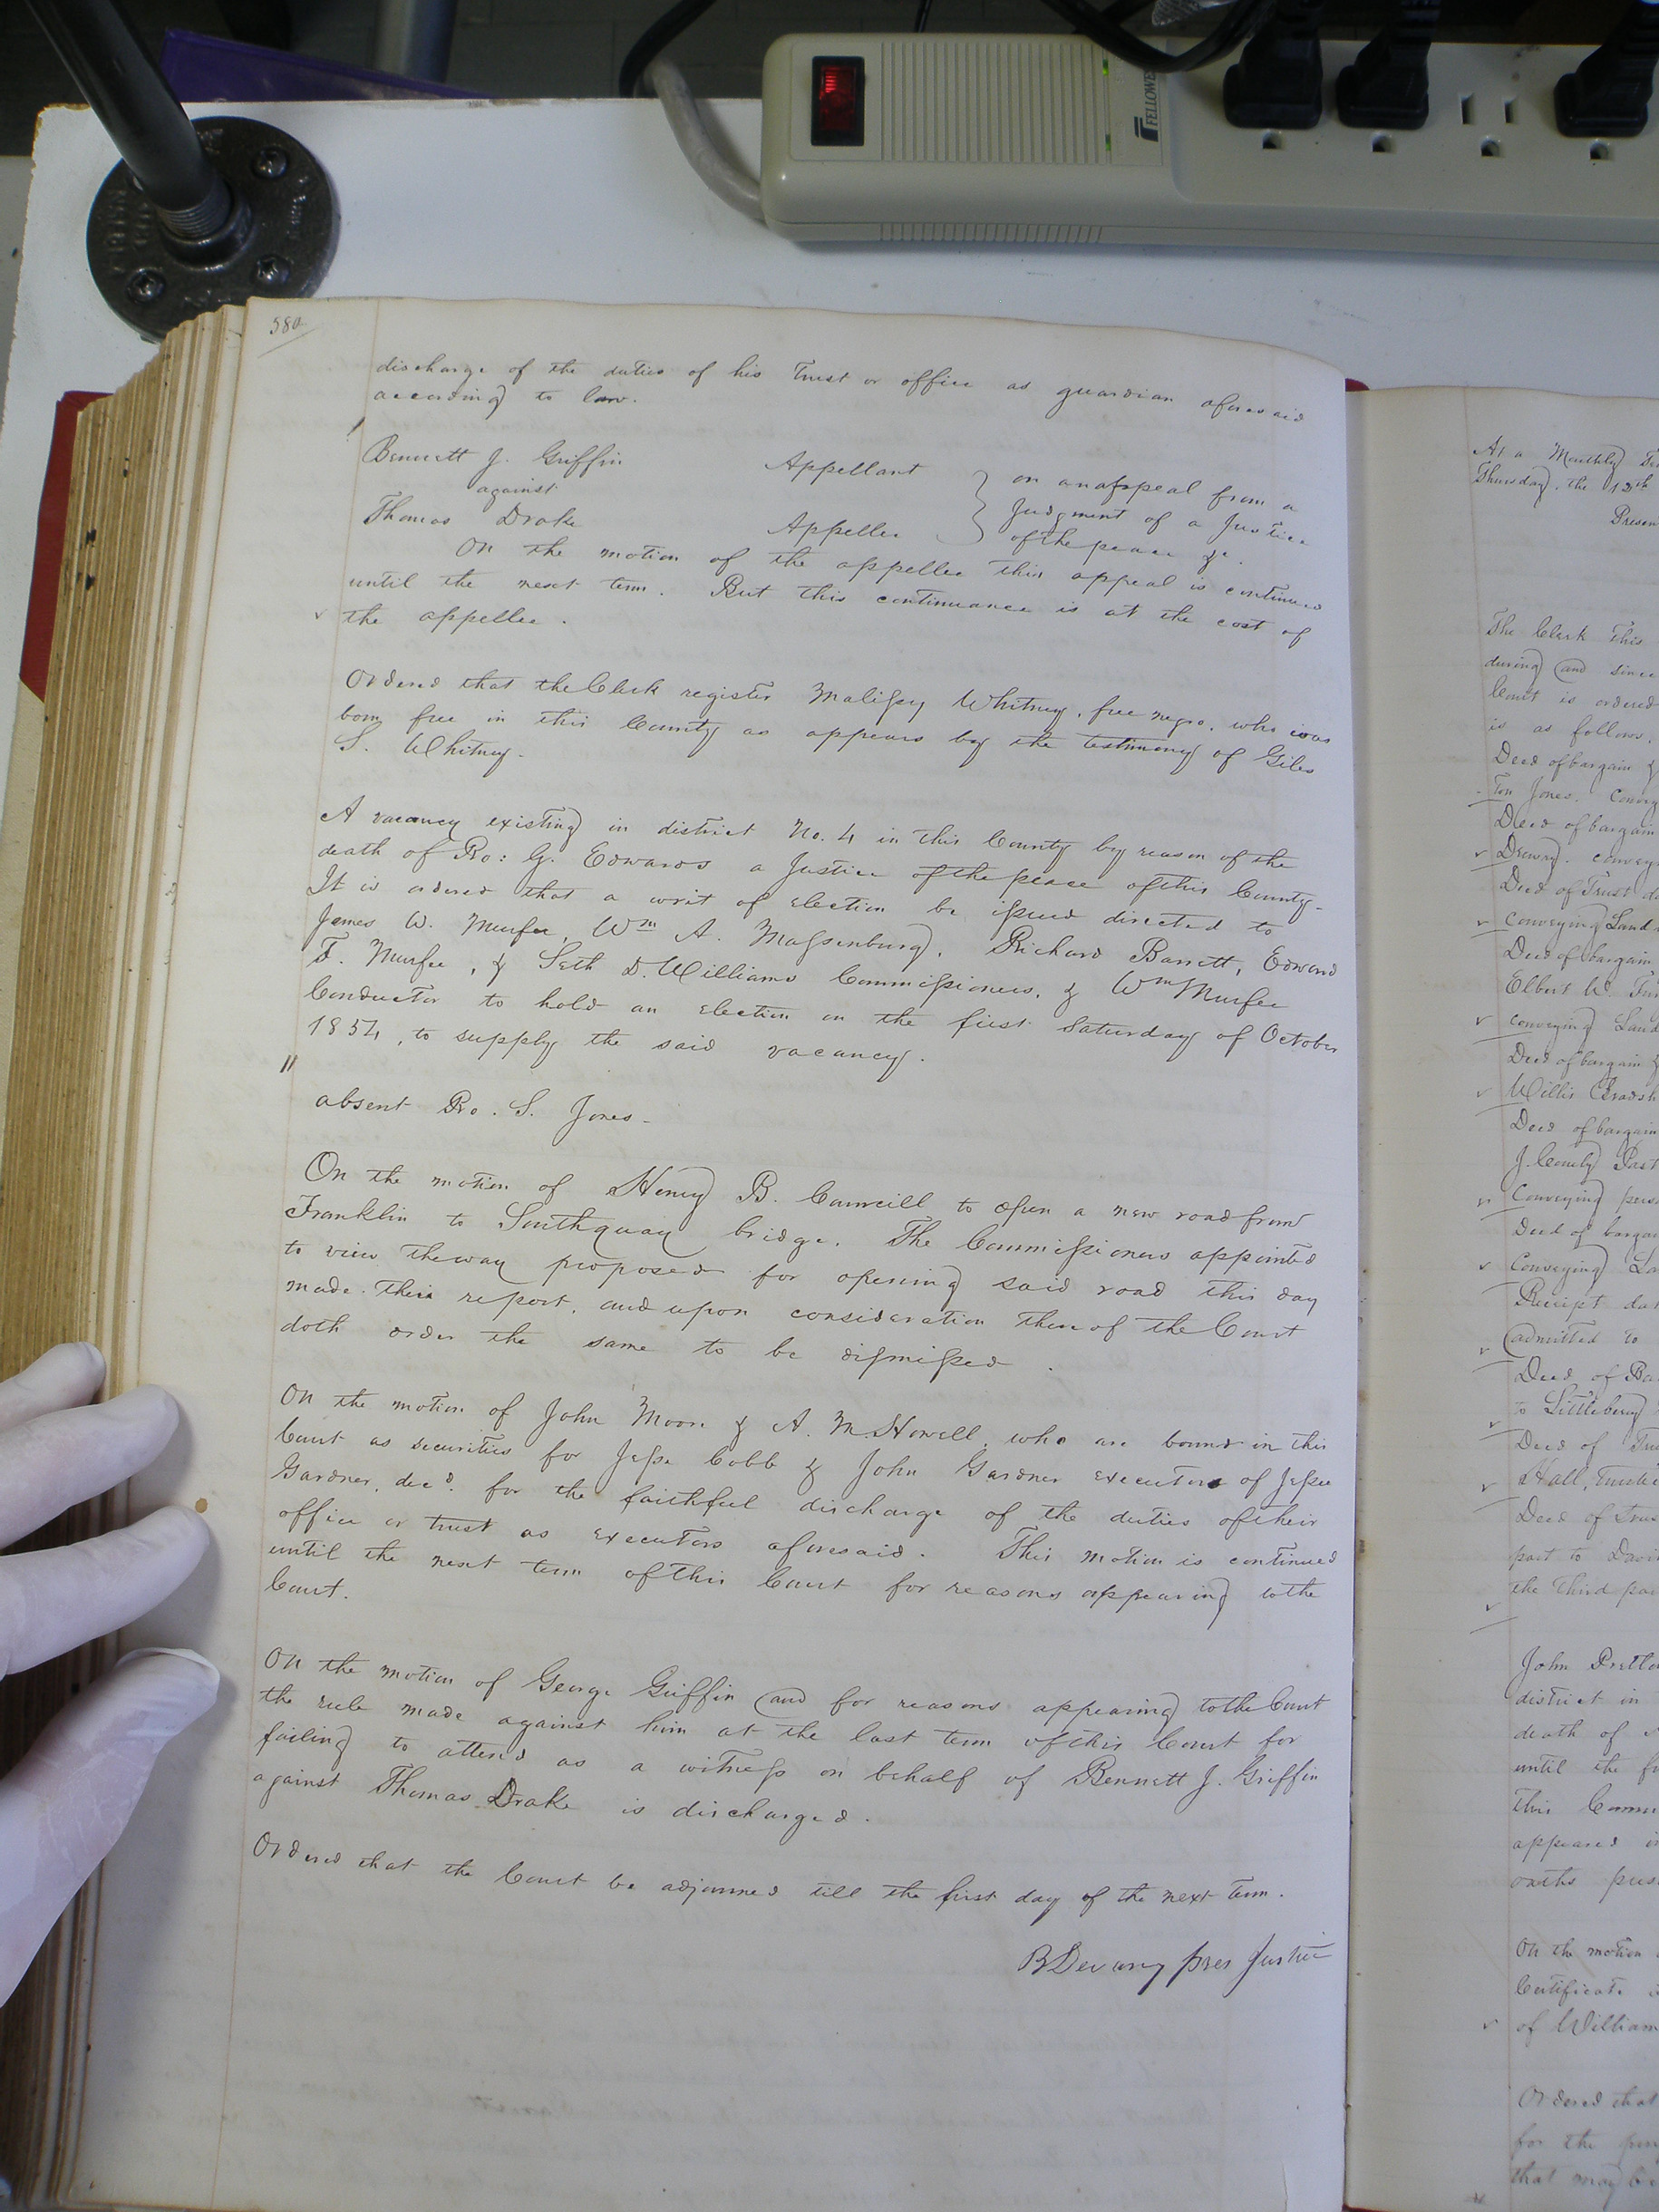 FELLOWES
580
discharge of the duties of his trust or office as guardian aforesaid
according to law.
Bennett J. Griffin Appellant
against
on an appeal from a
Judgment of a Justice
of the peace &c.
Thomas Drake Appellee
On the motion of the appellee this appeal is continued
until the next term. But this continuance is at the cost of
the appellee.
Ordered that the Clerk register Malissy Whitney, free negro, who was
born free in this County as appears by the testimony of Giles
S. Whitney.
A vacancy existing in district No. 4 in this County by reason of the
death of Ro: G. Edwards a Justice of the peace of this County-
It is ordered that a writ of election be issued directed to
James W. Murfee, Wm A. Massenburg, Richard Barrett, Edward
F. Murfee, & Seth D. Williams Commissioners, & Wm Murfee
Conductor to hold an election on the first Saturday of October
1854, to supply the said vacancy.
absent Ro. S. Jones-
On the motion of Henry B. Councill to open a new road from
Franklin to Southquay bridge. The Commissioners appointed
to view the way proposed for opening said road this day
made their report, and upon consideration thereof the Court
doth order the same to be dismissed.
On the motion of John Moore & A. M. Howell, who are bound in this
Court as securities for Jesse Cobb & John Gardner executors of Jesse
Gardner, decd. for the faithful discharge of the duties of their
office or trust as executors aforesaid. This motion is continued
until the next term of this Court for reasons appearing to the
Court.
On the motion of George Griffin and for reasons appearing to the Court
the rule made against him at the last term of this Court for
failing to attend as a witness on behalf of Bennett J. Griffin
against Thomas Drake is discharged.
Ordered that the Court be adjourned till the first day of the next term.
B Devany pres Justice
At a Monthly
Thursday, the 12th
Presen
The Clerk this
during and since
Court is ordered
is as follows,
Deed of bargain &
ton Jones. Convey
Deed of bargain
Drewry. convey
Deed of Trust d
conveying Land
Deed of bargain
Elbert W.
conveying Land
Deed of bargain &
Willis Bradsh
Deed of bargain
J. Comly
Conveying pers
Deed of barga
Conveying La
Receipt dat
admitted to
Deed of Ba
to Littlebury
Deed of Tru
Hall, trustee
Deed of Trus
part to Davi
the third par
John Pretlo
district in
death of
until the f
this Comm
appeared i
oaths pres
On the motion
Certificate
of William
Ordered that
for the
that may be